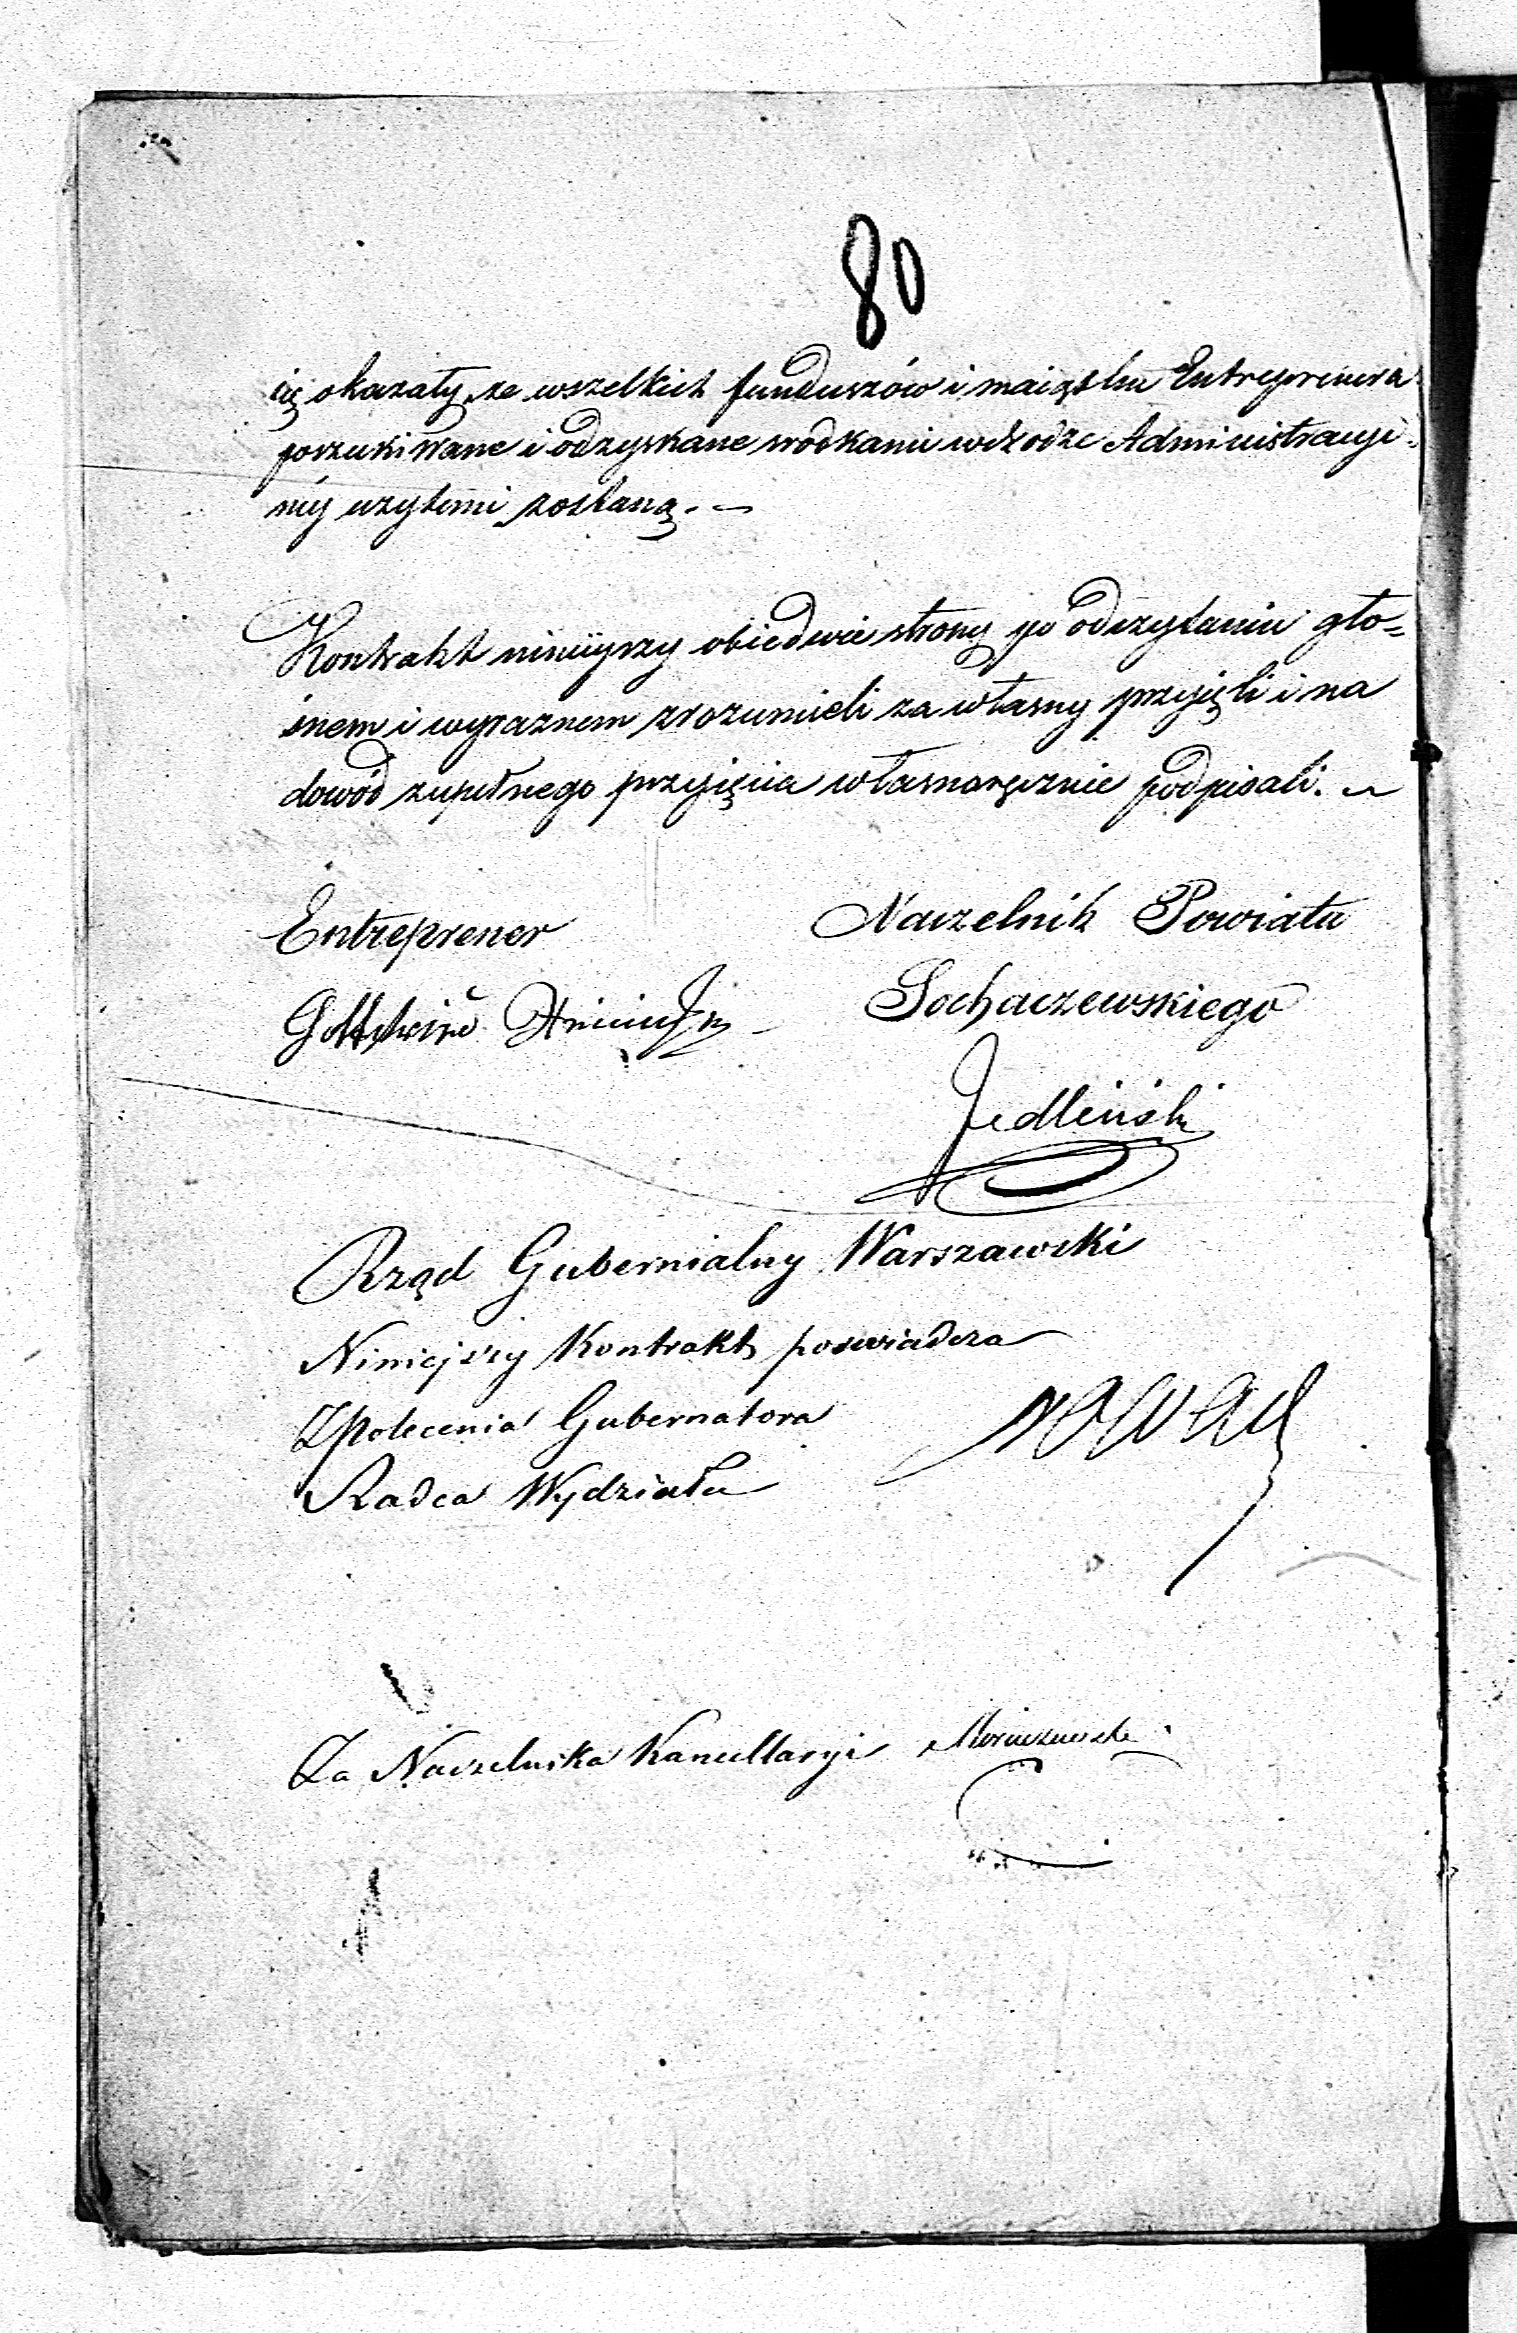 80
się okazały, ze wszelkich funduszów i maiątku Entreprenera
poszukiwane i odzyskane srodkami w drodze Administracyi-
néy uzytemi zostaną. —
Kontrakt ninieyszy obiedwie strony po odczytaniu gło=
snem i wyraznem zrozumieli za własny przyięli i na
dowód zupełnego przyięcia własnoręcznie podpisali. —
Entreprener
Naczelnik Powiatu
Sochaczewskiego
Jedliński
Rząd Gubernialny Warszawski
Niniejszy Kontrakt poswiadcza
Z Polecenia Gubernatora
Radca Wydziału
Za Naczelnika Kancellaryi